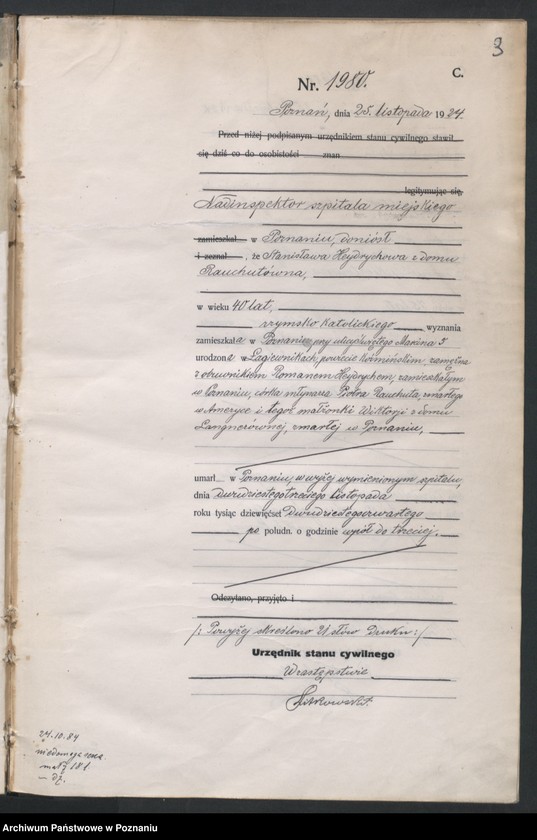 3
C.
Nr. 1980.
Poznań, dnia 25. listopada 1924.
Przed niżej podpisanym urzędnikiem stanu cywilnego stawił
się dziś co do osobistości znan
legitymując się,
Nadinspektor szpitala miejskiego
zamieszkał w Poznaniu, doniósł
i zeznał, że Stanisława Heydrychowa z domu
Rauchutówna,
w wieku 40 lat,
rzymsko katolickiego wyznania
zamieszkała w Poznaniu przy ulicy Świętego Marcina 5
urodzona w Łagiewnikach, powiecie Koźmińskim, zamężna
z obuwnikiem Romanem Heydrychem, zamieszkałym
w Poznaniu, córka młynarza Piotra Rauchuta, zmarłego
w Ameryce i tegoż małżonki Wiktorji z domu
Langnerównej, zmarłej w Poznaniu,
umarł w Poznaniu, w wyżej wymienionym szpitalu,
dnia dwudziestegotrzeciego listopada
roku tysiąc dziewięćset dwudziestegoczwartego
po połudn. o godzinie wpół do trzeciej.
Odczytano, przyjęto i
/: Powyżej skreślono 21 słów druku :/
Urzędnik stanu cywilnego
W zastępstwie
24.10.84
Archiwum Państwowe w Poznaniu